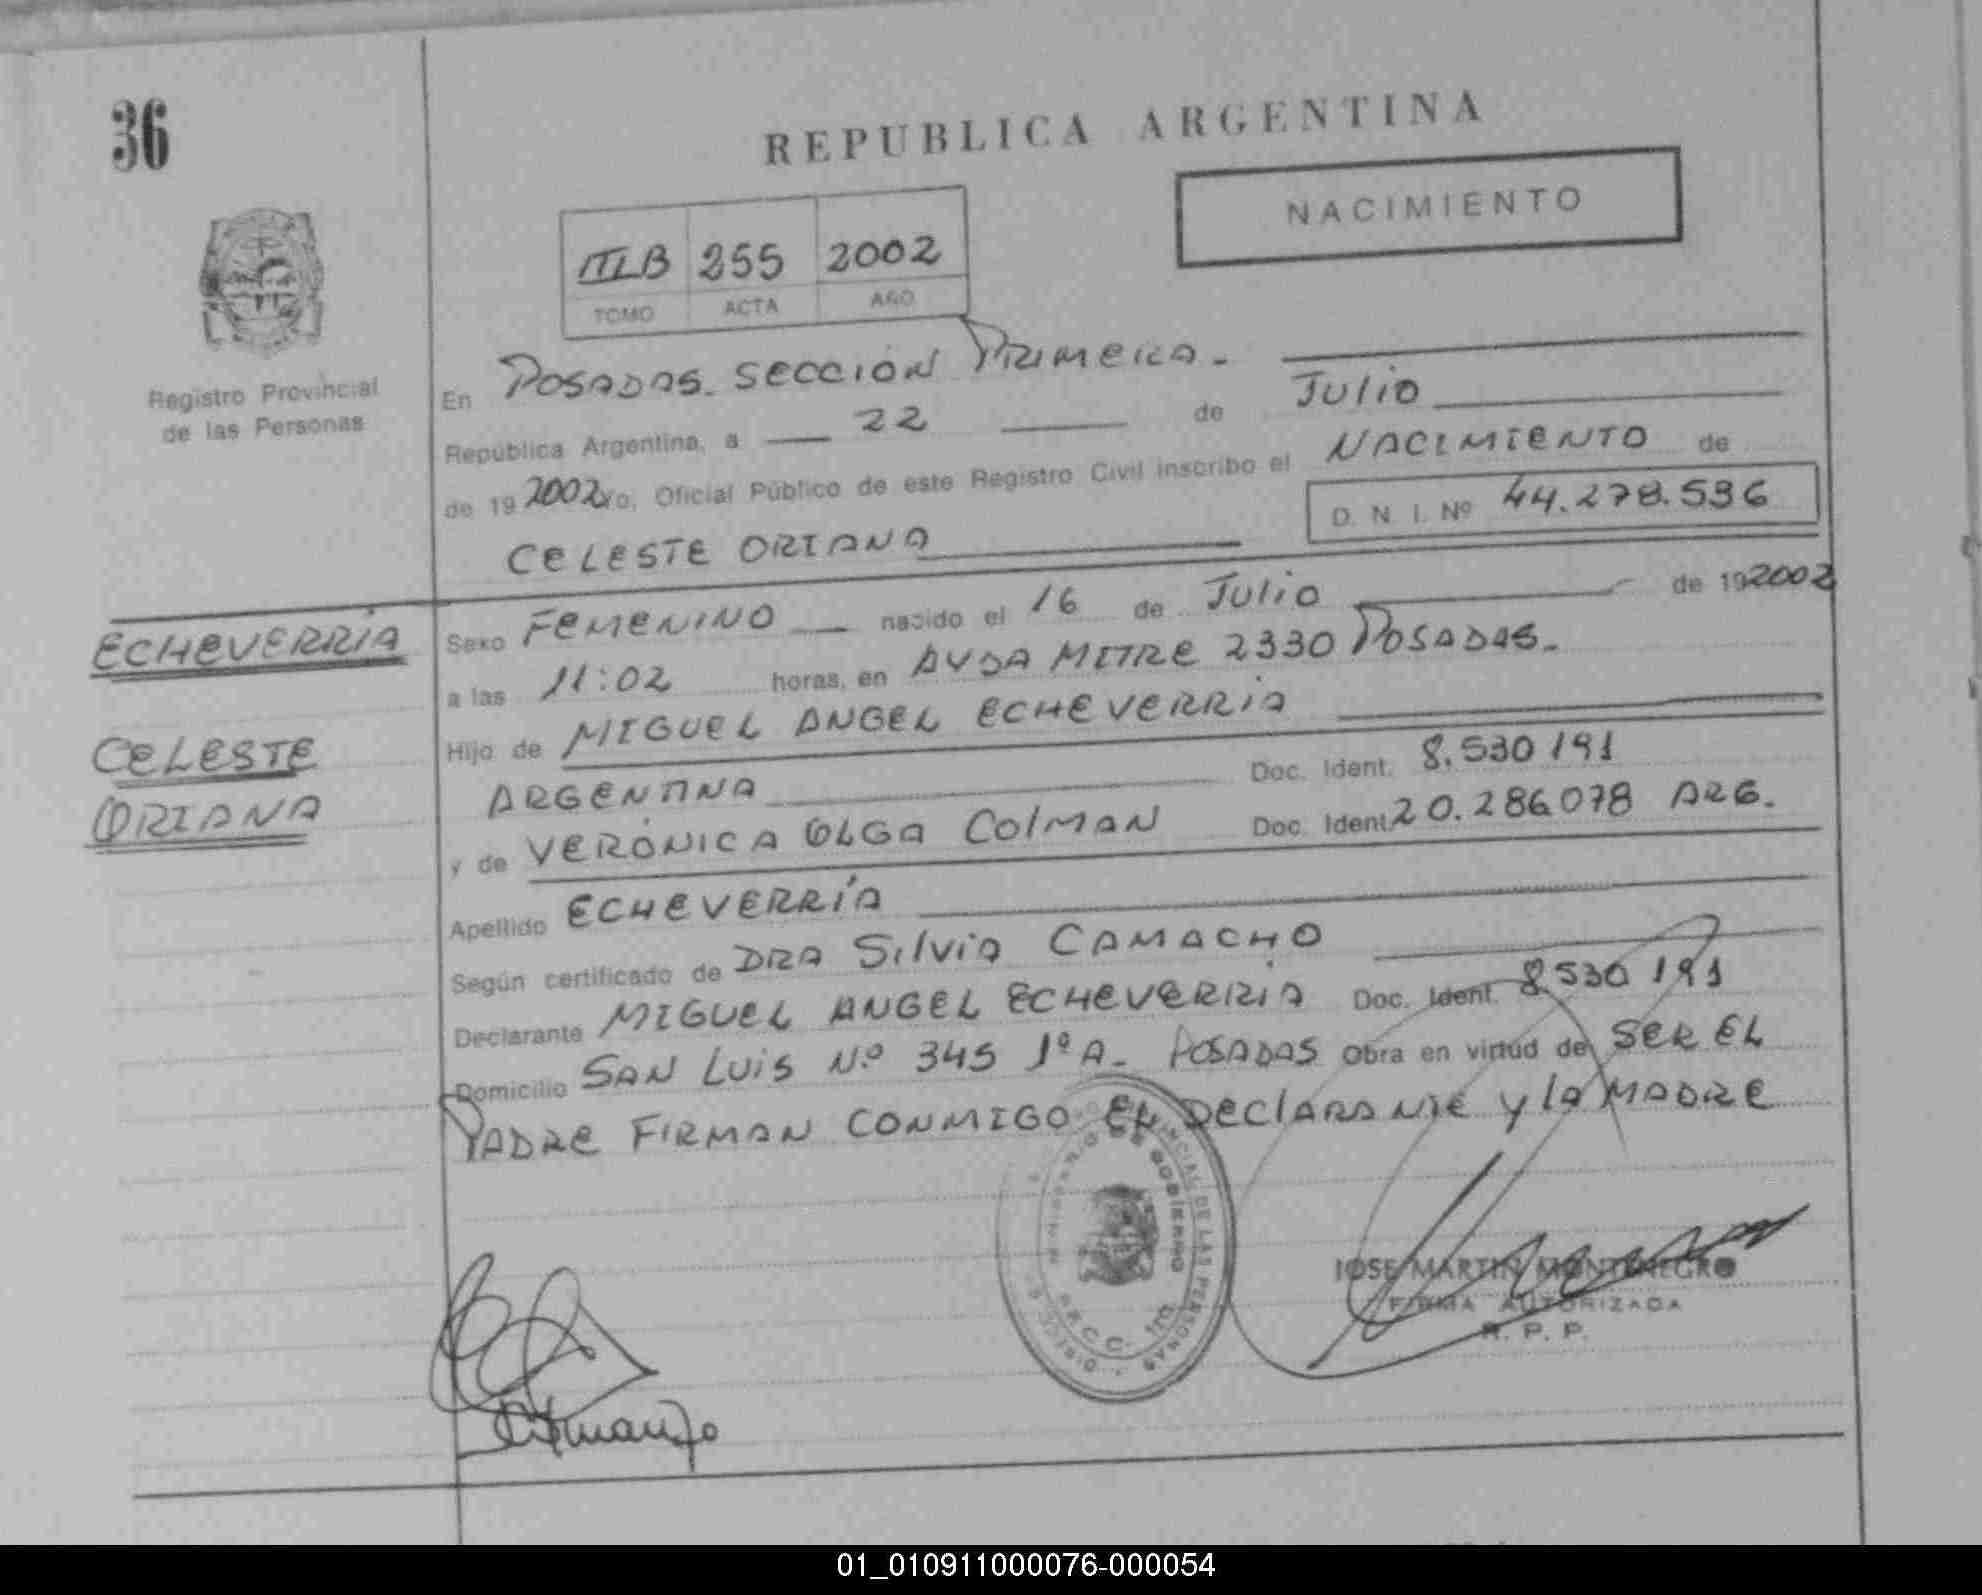 36
REPUBLICA ARGENTINA
NACIMIENTO
IILB 255 2002
TOMO ACTA AÑO
Registro Provincial
de las Personas
En POSADAS. SECCION PRIMERA.-
República Argentina, a 22 de JULIO
de 19 2002 Yo, Oficial Público de este Registro Civil inscribo el NACIMIENTO de
D. N. I. Nº 44.278.596
CELESTE ORIANA
ECHEVERRÍA
CELESTE
ORIANA
Sexo FEMENINO nacido el 16 de JULIO de 19 2002
a las 11:02 horas, en AVDA MITRE 2330 POSADAS.-
Hijo de MIGUEL ANGEL ECHEVERRÍA
ARGENTINA Doc. Ident. 8.530191
y de VERÓNICA OLGA COLMAN Doc. Ident. 20.286078 ARG.
Apellido ECHEVERRÍA
Según certificado de DRA SILVIA CAMACHO
Declarante MIGUEL ANGEL ECHEVERRÍA Doc. Ident. 8.530191
Domicilio SAN LUIS Nº 345 1º A- POSADAS Obra en virtud de SER EL
PADRE FIRMAN CONMIGO EL DECLARANTE Y LA MADRE
JOSE MARTIN MONTENEGRO
FIRMA AUTORIZADA
R. P. P.
01_010911000076-000054